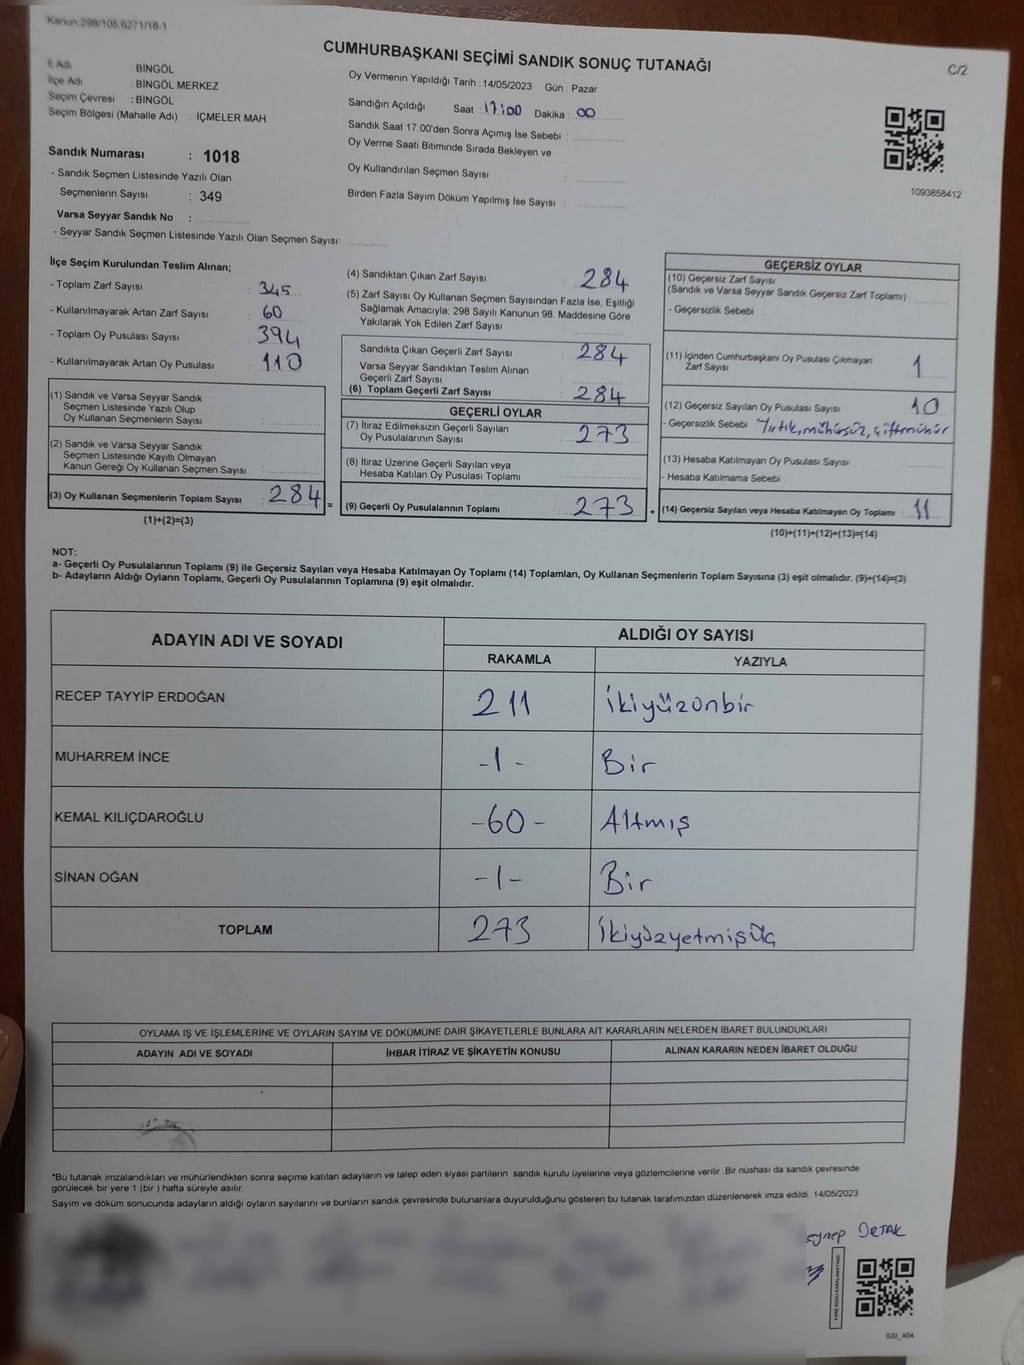 Kanun:298/105,6271/18-1
CUMHURBAŞKANI SEÇİMİ SANDIK SONUÇ TUTANAĞI
C/2
İl Adı : BİNGÖL
İlçe Adı : BİNGÖL MERKEZ
Seçim Çevresi : BİNGÖL
Seçim Bölgesi (Mahalle Adı) : İÇMELER MAH.
Oy Vermenin Yapıldığı Tarih : 14/05/2023 Gün : Pazar
Sandığın Açıldığı Saat : 17:00 Dakika : 00
Sandık Saat 17:00'den Sonra Açımış İse Sebebi :
Oy Verme Saati Bitiminde Sırada Bekleyen ve
Oy Kullandırılan Seçmen Sayısı :
Birden Fazla Sayım Döküm Yapılmış İse Sayısı :
1093858412
Sandık Numarası : 1018
- Sandık Seçmen Listesinde Yazılı Olan
Seçmenlerin Sayısı : 349
Varsa Seyyar Sandık No :
- Seyyar Sandık Seçmen Listesinde Yazılı Olan Seçmen Sayısı:
İlçe Seçim Kurulundan Teslim Alınan;
- Toplam Zarf Sayısı : 345
- Kullanılmayarak Artan Zarf Sayısı : 60
- Toplam Oy Pusulası Sayısı : 394
- Kullanılmayarak Artan Oy Pusulası : 110
(1) Sandık ve Varsa Seyyar Sandık
Seçmen Listesinde Yazılı Olup
Oy Kullanan Seçmenlerin Sayısı :
(2) Sandık ve Varsa Seyyar Sandık
Seçmen Listesinde Kayıtlı Olmayan
Kanun Gereği Oy Kullanan Seçmen Sayısı :
(3) Oy Kullanan Seçmenlerin Toplam Sayısı : 284 =
(1)+(2)=(3)
(4) Sandıktan Çıkan Zarf Sayısı : 284
(5) Zarf Sayısı Oy Kullanan Seçmen Sayısından Fazla İse, Eşitliği
Sağlamak Amacıyla; 298 Sayılı Kanunun 98. Maddesine Göre
Yakılarak Yok Edilen Zarf Sayısı :
Sandıkta Çıkan Geçerli Zarf Sayısı : 284
Varsa Seyyar Sandıktan Teslim Alınan
Geçerli Zarf Sayısı :
(6) Toplam Geçerli Zarf Sayısı : 284
GEÇERLİ OYLAR
(7) İtiraz Edilmeksizin Geçerli Sayılan
Oy Pusulalarının Sayısı : 273
(8) İtiraz Üzerine Geçerli Sayılan veya
Hesaba Katılan Oy Pusulası Toplamı :
(9) Geçerli Oy Pusulalarının Toplamı : 273 +
GEÇERSİZ OYLAR
(10) Geçersiz Zarf Sayısı
(Sandık ve Varsa Seyyar Sandık Geçersiz Zarf Toplamı) :
- Geçersizlik Sebebi :
(11) İçinden Cumhurbaşkanı Oy Pusulası Çıkmayan
Zarf Sayısı : 1
(12) Geçersiz Sayılan Oy Pusulası Sayısı : 10
- Geçersizlik Sebebi : Yırtık, mühürsüz, çift mühür
(13) Hesaba Katılmayan Oy Pusulası Sayısı :
- Hesaba Katılmama Sebebi :
(14) Geçersiz Sayılan veya Hesaba Katılmayan Oy Toplamı : 11
(10)+(11)+(12)+(13)=(14)
NOT:
a- Geçerli Oy Pusulalarının Toplamı (9) ile Geçersiz Sayılan veya Hesaba Katılmayan Oy Toplamı (14) Toplamları, Oy Kullanan Seçmenlerin Toplam Sayısına (3) eşit olmalıdır. (9)+(14)=(3)
b- Adayların Aldığı Oyların Toplamı, Geçerli Oy Pusulalarının Toplamına (9) eşit olmalıdır.
ADAYIN ADI VE SOYADI ALDIĞI OY SAYISI
RAKAMLA YAZIYLA
RECEP TAYYİP ERDOĞAN 211 İkiyüzonbir
MUHARREM İNCE -1- Bir
KEMAL KILIÇDAROĞLU -60- Altmış
SİNAN OĞAN -1- Bir
TOPLAM 273 İkiyüzyetmişüç
OYLAMA İŞ VE İŞLEMLERİNE VE OYLARIN SAYIM VE DÖKÜMÜNE DAİR ŞİKAYETLERLE BUNLARA AİT KARARLARIN NELERDEN İBARET BULUNDUKLARI
ADAYIN ADI VE SOYADI İHBAR İTİRAZ VE ŞİKAYETİN KONUSU ALINAN KARARIN NEDEN İBARET OLDUĞU
*Bu tutanak imzalandıktan ve mühürlendikten sonra seçime katılan adayların ve talep eden siyasi partilerin sandık kurulu üyelerine veya gözlemcilerine verilir. Bir nüshası da sandık çevresinde
görülecek bir yere 1 (bir ) hafta süreyle asılır.
Sayım ve döküm sonucunda adayların aldığı oyların sayılarını ve bunların sandık çevresinde bulunanlara duyurulduğunu gösteren bu tutanak tarafımızdan düzenlenerek imza edildi. 14/05/2023
eynep ORTAK
SSI_404